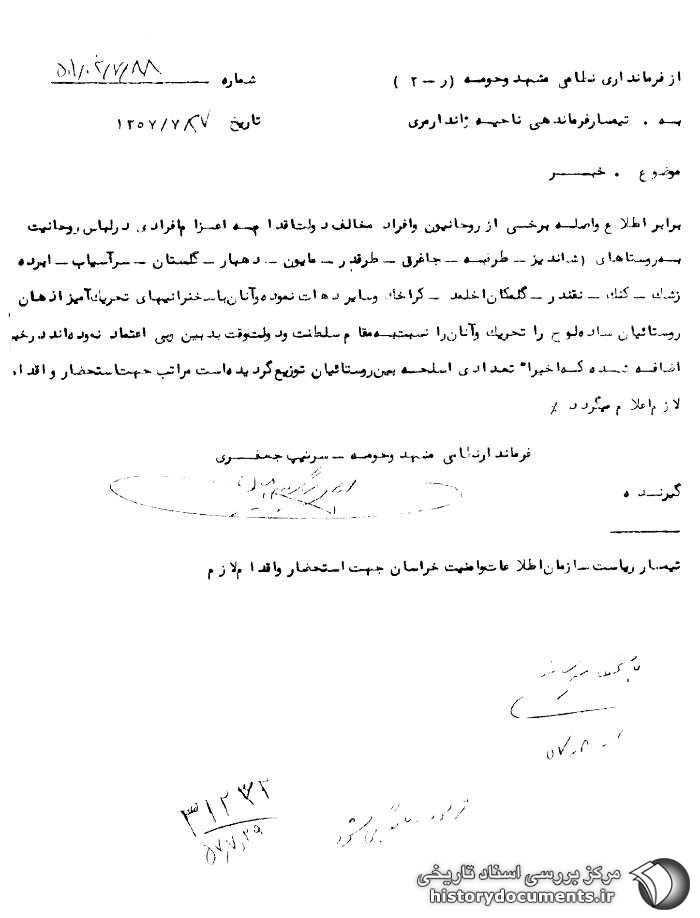 از فرمانداری نظامی مشهد وحومه (ر – ۲ ) شماره ۵۰۱/۰۲/۷/۸۸
به . تیمسارفرماندهی ناحیه ژاندارمری تاریخ ۱۳۵۷/۷/۲۷
موضوع . خبر
برابر اطلاع واصله برخی از روحانیون وافراد مخالف دولت اقدام به اعزام افرادی درلباس روحانیت
به روستاهای (شاندیز – طرقبه – جاغرق – طرقدر – مایون – دهبار – گلستان – سرآسیاب – ابرده
زشک – کنگ – نقندر – گلمکان اخلمد – کراخک وسایر دهات نموده وآنان باسخنرانیهای تحریک آمیز اذهان
روستائیان ساده لوح را تحریک وآنان را نسبت به مقام سلطنت ودولت وقت بدبین وبی اعتماد نموده اند درخبر
اضافه شده که اخیرا" تعدادی اسلحه بین روستائیان توزیع گردیده است مراتب جهت استحضار و اقدام
لازم اعلام میگردد ٪
فرماندار نظامی مشهد وحومه – سرتیپ جعفری
گیرنده
تیمسار ریاست سازمان اطلاعات وامنیت خراسان جهت استحضار واقدام لازم
۳۱۲۳۲
۵۷/۷/۲۹
مرکز بررسی اسناد تاریخی
historydocuments.ir